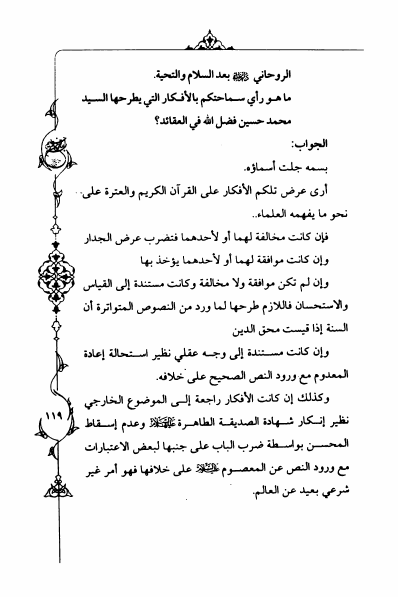 الروحاني ﷺ بعد السلام والتحية.
ما هو رأي سماحتكم بالأفكار التي يطرحها السيد
محمد حسين فضل الله في العقائد؟
الجواب:
بسمه جلت أسماؤه.
أرى عرض تلكم الأفكار على القرآن الكريم والعترة على
نحو ما يفهمه العلماء..
فإن كانت مخالفة لهما أو لأحدهما فتضرب عرض الجدار
وإن كانت موافقة لهما أو لأحدهما يؤخذ بها
وإن لم تكن موافقة ولا مخالفة وكانت مستندة إلى القياس
والاستحسان فاللازم طرحها لما ورد من النصوص المتواترة أن
السنة إذا قيست محق الدين
وإن كانت مستندة إلى وجه عقلي نظير استحالة إعادة
المعدوم مع ورود النص الصحيح على خلافه.
وكذلك إن كانت الأفكار راجعة إلى الموضوع الخارجي
نظير إنكار شهادة الصديقة الطاهرة وعدم إسقاط
المحسن بواسطة ضرب الباب على جنبها لبعض الاعتبارات
مع ورود النص عن المعصوم على خلافها فهو أمر غير
شرعي بعيد عن العالم.
١١٩